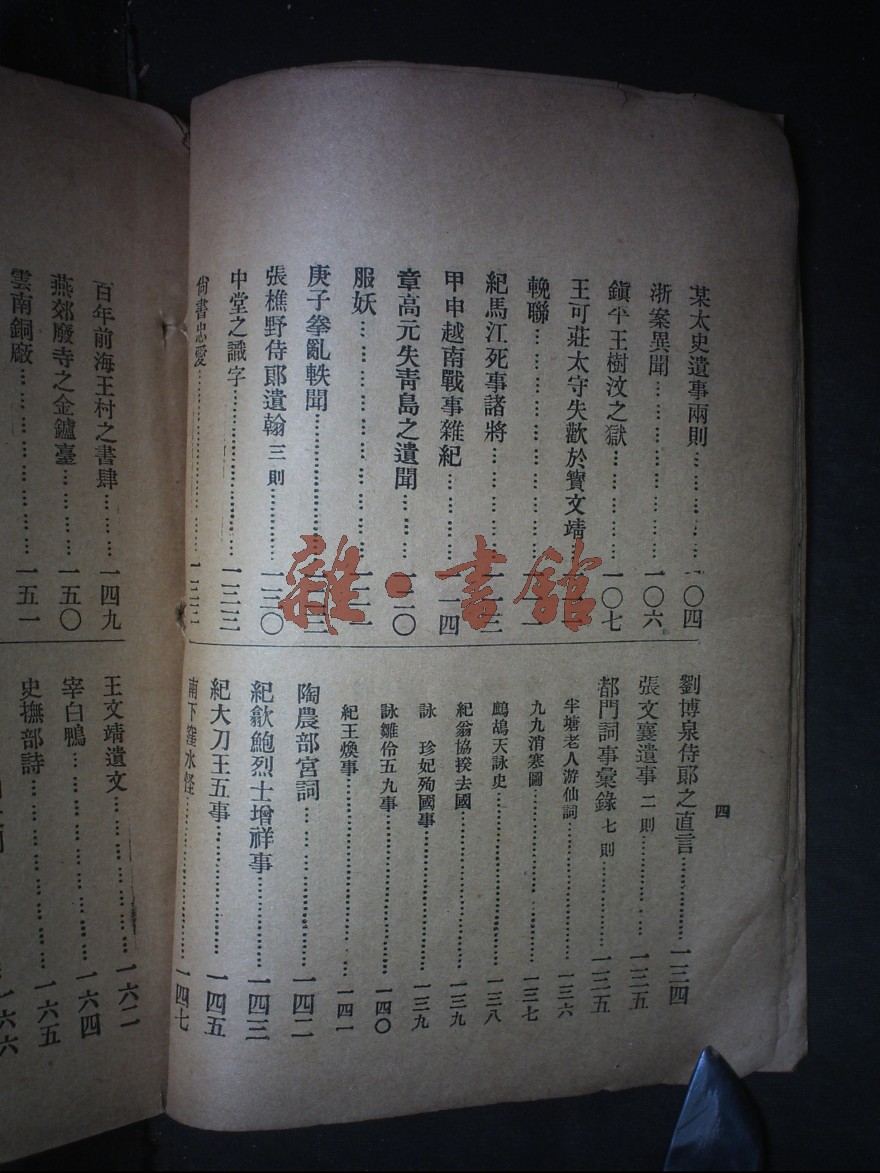 某太史遺事兩則…………一〇四
浙案異聞…………一〇六
鎮平王樹汶之獄…………一〇七
王可莊太守失歡於寶文靖…………
輓聯…………
紀馬江死事諸將…………
甲申越南戰事雜紀…………一一四
章高元失青島之遺聞…………一二〇
服妖…………
庚子拳亂軼聞…………
張樵野侍郎遺翰 三則…………一三〇
中堂之識字…………一三三
尙書忠愛…………一三三
四
劉博泉侍郎之直言…………一三四
張文襄遺事 二則…………一三五
都門詞事彙錄 七則…………一三五
半塘老人游仙詞…………一三六
九九消寒圖…………一三七
鷓鴣天詠史…………一三八
紀翁協揆去國…………一三九
詠 珍妃殉國事…………一三九
詠雛伶五九事…………一四〇
紀王煥事…………一四一
陶農部宮詞…………一四二
紀歙鮑烈士增祥事…………一四三
紀大刀王五事…………一四五
南下窪水怪…………一四七
百年前海王村之書肆…………一四九
燕郊廢寺之金鑪臺…………一五〇
雲南銅廠…………一五一
王文靖遺文…………一六二
宰白鴨…………一六四
史撫部詩…………一六五
一六六
雜·書館